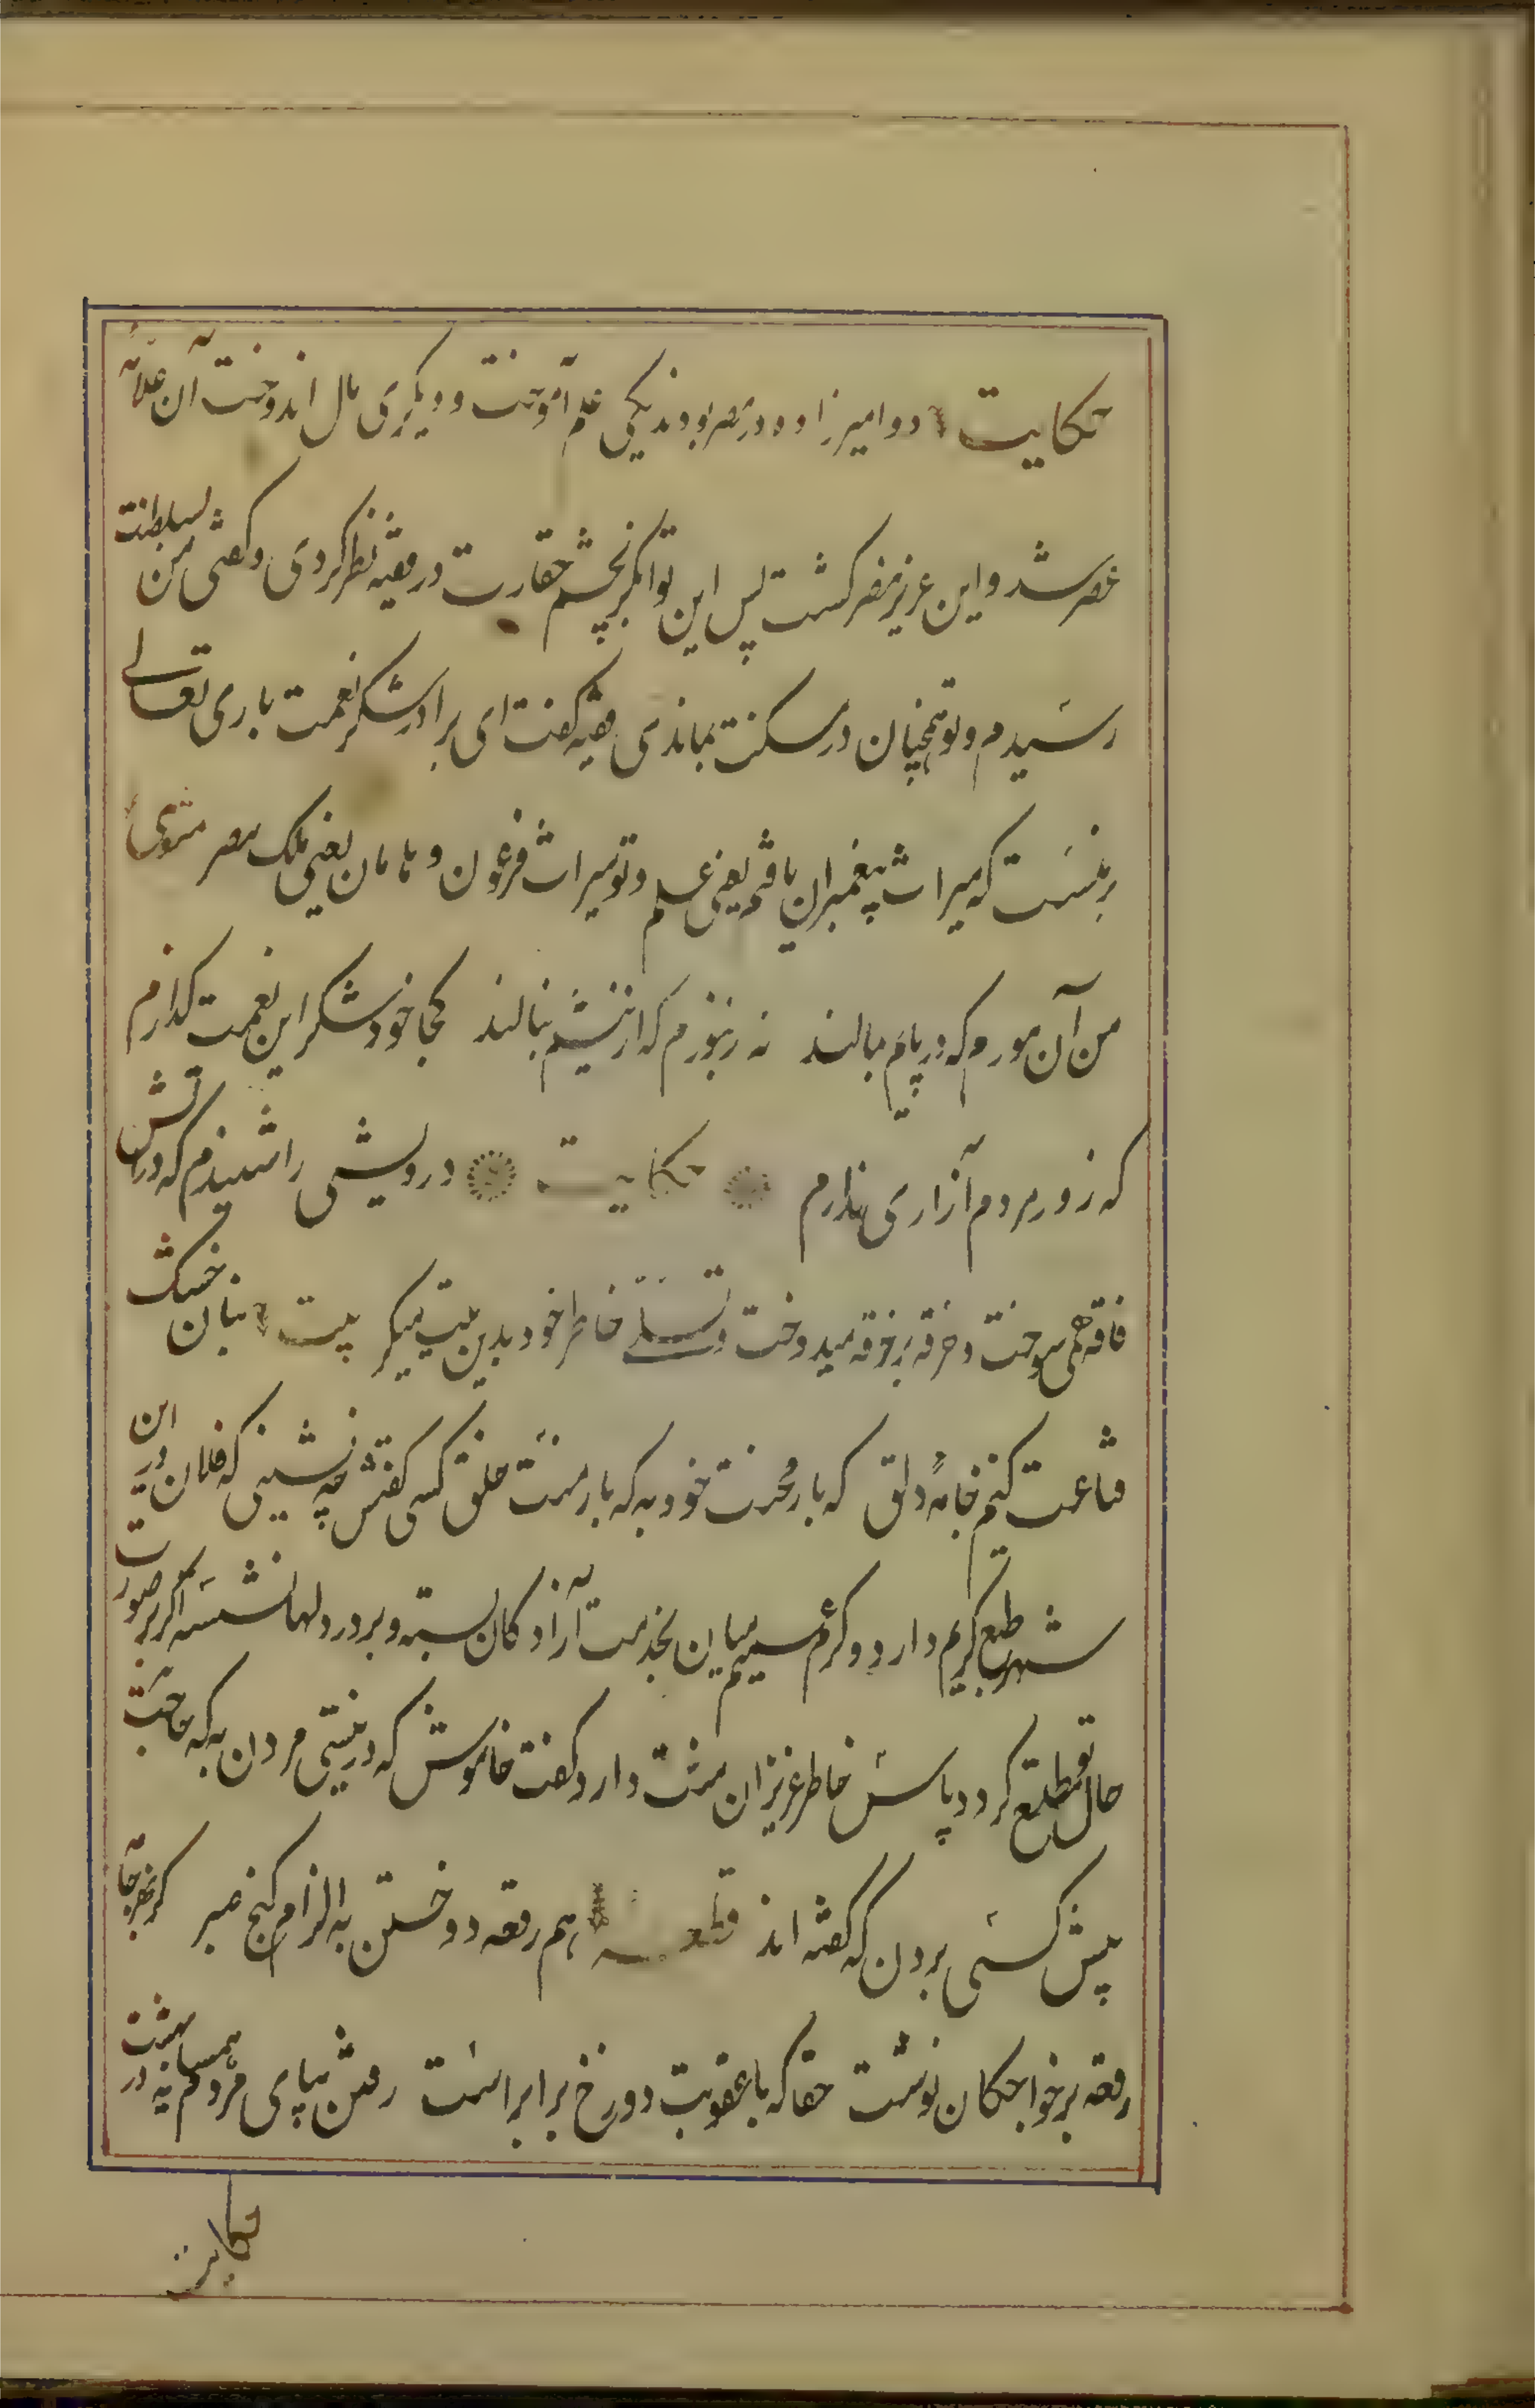 حکایت دو امیرزاده در مصر بودند یکی علم آموخت و دیگری مال اندوخت آن علامهٔ
عصر شد و این عزیز مصر گشت پس این توانگر بچشم حقارت در فقیه نظر کردی و گفتی من بسلطنت
رسیدم و تو همچنان در مسکنت بماندی فقیه گفت ای برادر شکر نعمت باری تعالی
بر منست که میراث پیغمبران یافتم یعنی علم و تو میراث فرعون و هامان یعنی ملک مصر مثنوی
من آن مورم که در پایم بمالند نه زنبورم که از نیشم بنالند کجا خود شکر این نعمت گذارم
که زور مردم آزاری ندارم حکایت درویشی را شنیدم که در آتش
فاقه همی سوخت و خرقه بر خرقه میدوخت و تسلی خاطر خود بدین بیت میکر بیت بنان خشک
قناعت کنیم و جامهٔ دلق که بار محنت خود به که بار منت خلق کسی گفتش چه نشینی که فلان درین
شهر طبع کریم دارد و کرم عمیم میان بخدمت آزادگان بسته و بر در دلها نشسته اگر بر صورت
حال تو مطلع گردد پاس خاطر عزیزان منت دارد گفت خاموش که در نیستی مردن به که حاجت
پیش کسی بردن که گفته اند قطعه هم رقعه دوختن به الزام کنج صبر کز بهر جامه
رقعه بر خواجگان نوشت حقا که با عقوبت دوزخ برابر است رفتن بپای مردی همسایه در بهشت
حکایت